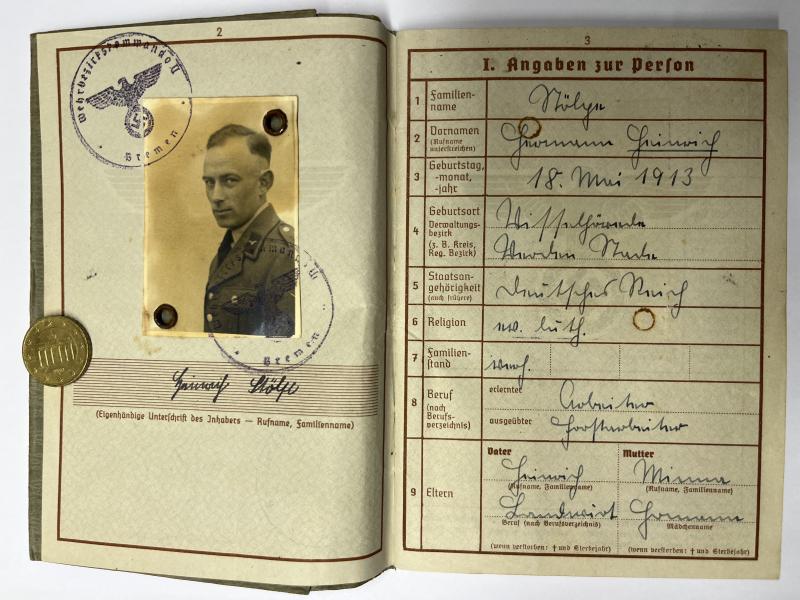 2
Wehrbezirkskommando II
Bremen
Bremen
Heinrich Stölpe
(Eigenhändige Unterschrift des Inhabers — Rufname, Familienname)
3
I. Angaben zur Person
1 Familien-
name
2 Vornamen
(Rufname
unterstreichen)
Hermann Heinrich
3 Geburtstag,
-monat,
-jahr
18. Mai 1913
4 Geburtsort
Verwaltungs-
bezirk
(z. B. Kreis,
Reg. Bezirk)
Visselhövede
Verden Stade
5 Staatsan-
gehörigkeit
(auch frühere)
Deutsches Reich
6 Religion
ev. luth.
7 Familien-
stand
verh.
8 Beruf
(nach
Berufs-
verzeichnis)
erlernter
Arbeiter
ausgeübter
Forstarbeiter
9 Eltern
Vater
Heinrich
(Rufname, Familienname)
Landwirt
Beruf (nach Berufsverzeichnis)
(wenn verstorben: † und Sterbejahr)
Mutter
Minna
(Rufname, Familienname)
Mädchenname
(wenn verstorben: † und Sterbejahr)